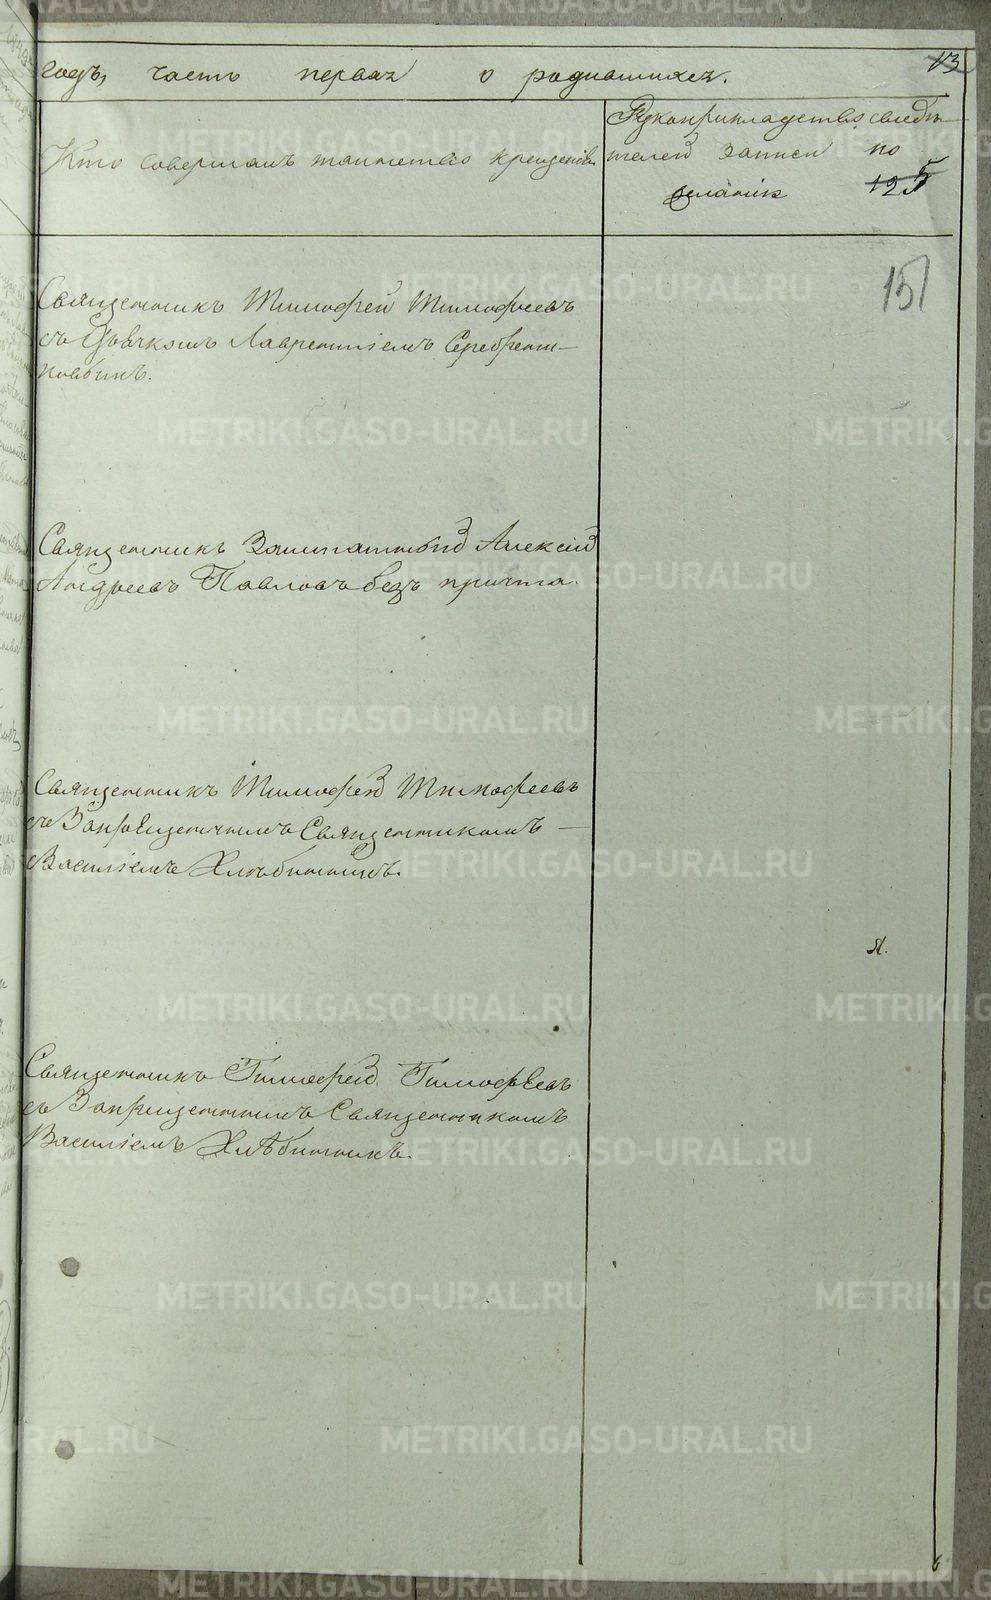 годъ, часть первая о родившихся. 13
Кто совершалъ таинство крещенія. Рукоприкладство свидѣ-
телей записи по
желанію 125
151
Священникъ Тимофей Тимофеевъ
съ Дьячкомъ Лаврентіемъ Серебрен-
никовымъ.
Священникъ Заштатный Алексій
Андреевъ Павловъ безъ причта.
Священникъ Тимофей Тимофеевъ
съ Запрещеннымъ Священникомъ
Василіемъ Хлѣбинымъ.
Я.
Священникъ Тимофей Тимофѣевъ
съ Запрещеннымъ Священникомъ
Василіемъ
METRIKI.GASO-URAL.RU